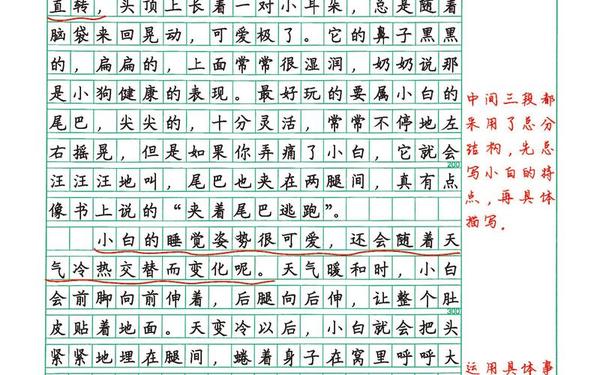 直转，头顶上长着一对小耳朵，总是随着
脑袋来回晃动，可爱极了。它的鼻子黑黑
的，扁扁的，上面常常很湿润，奶奶说那
是小狗健康的表现。最好玩的要属小白的
尾巴，尖尖的，十分灵活，常常不停地左
右摇晃，但是如果你弄痛了小白，它就会
200
汪汪汪地叫，尾巴也夹在两腿间，真有点
像书上说的“夹着尾巴逃跑”。
小白的睡觉姿势很可爱，还会随着天
气冷热交替而变化呢。天气暖和时，小白
会前脚向前伸着，后腿向后伸，让整个肚
300
皮贴着地面。天变冷以后，小白就会把头
紧紧地埋在腿间，蜷着身子在窝里呼呼大
中间三段都
采用了总分
结构，先总
写小白的特
点，再具体
描写．
运用具体事